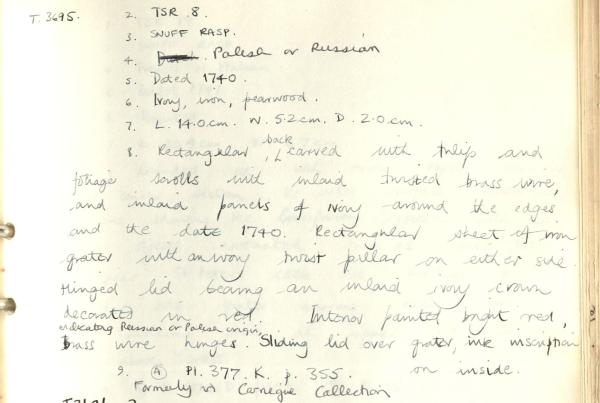 T. 3695.
2. TSR 8.
3. SNUFF RASP.
4. Polish or Russian
5. Dated 1740.
6. Ivory, iron, pearwood.
7. L. 14.0cm. W. 5.2cm. D. 2.0cm.
8. Rectangular, back carved with tulip and
foliage scrolls with inlaid twisted brass wire,
and inlaid panels of ivory around the edges
and the date 1740. Rectangular sheet of iron
grater with an ivory twist pillar on either side.
Hinged lid bearing an inlaid ivory crown
decorated in red. Interior painted bright red,
indicating Russian or Polish origin,
brass wire hinges. Sliding lid over grater, ink inscription
on inside.
9. A Pl. 377. K. p. 355.
Formerly in Carnegie Collection